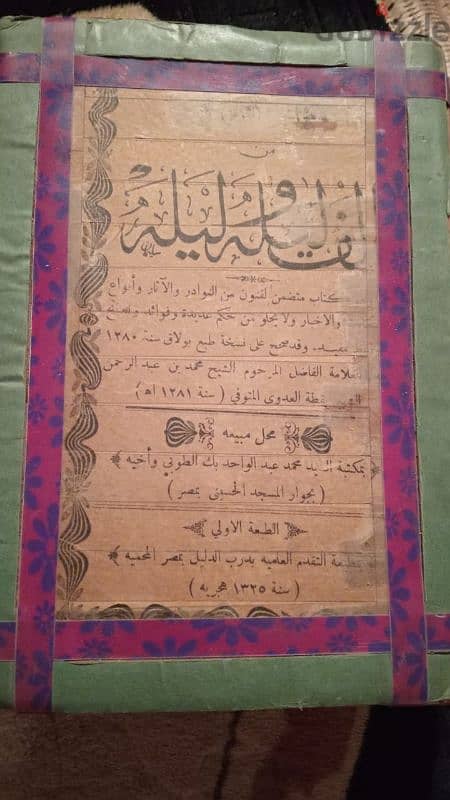 dubizzle
من
ألف ليلة وليلة
كتاب متضمن لفنون من النوادر والآثار وأنواع
والاخبار ولا يخلو من حكم عديدة وفوائد
مفيد. وقد صحح على نسخة طبع بولاق سنة ١٢٨٠
العلامة الفاضل المرحوم الشيخ محمد بن عبد الرحمن
قطة العدوى المتوفى ( سنة ١٢٨١ اه‍ )
محل مبيعه
بمكتبة السيد محمد عبد الواحد بك الطوبى وأخيه
( بجوار المسجد الحسينى بمصر )
الطبعة الاولى
التقدم العلميه بدرب الدليل بمصر المحميه
( سنة ١٣٢٥ هجريه )